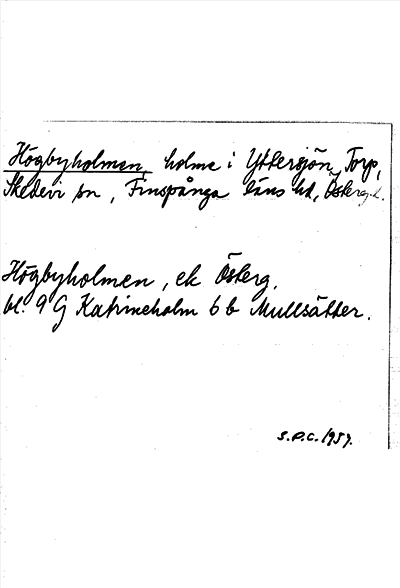 Högbyholmen, holme i Yttersjön, Torp,
Skedevi sn, Finspånga läns hd, Österg. l.
Högbyholmen, ek Österg.
bl. 9 G Katrineholm 6 b Mullsätter.
S.P.C. 1957.